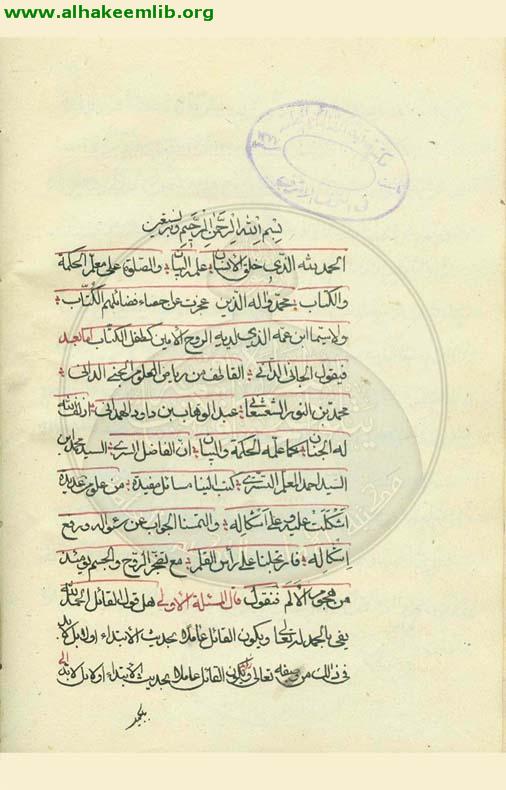 www.alhakeemlib.org
بسم الله الرحمن الرحيم وبه نستعين
الحمد لله الذي خلق الانسان علمه البيان والصلوة على معلم الحكمة
والكتاب محمد واله الذين عجزت عن احصاء فضائلهم الكتاب
ولاسيما ابن عمه الذي لديه الروح الامين كطفل الكتاب اما بعد
فيقول الجاني الداني القاطف من رياض العلوم المجني الداني
محمد بن عبد الوهاب بن داود الهمداني
له الجنان كما علمه الحكمة والبيان ان الفاضل السري السيد محمد بن
السيد احمد المعلم التستري كتب الينا مسائل مفيدة من علوم عديدة
اشكلت عليه والتمسنا الجواب عن سؤاله ورفع
اشكاله فارتجلنا على رأس القلم مع تضجر الروح والجسم
من هجوم الالم فنقول قال المسئلة الاولى هل قول القائل الحمد لله
يفي بالحمد له تعالى ويكون القائل عاملا بحديث الابتداء اولا بل لابد
في ذلك من وصفه تعالى القائل عاملا بحديث الابتداء اولا بل لابد